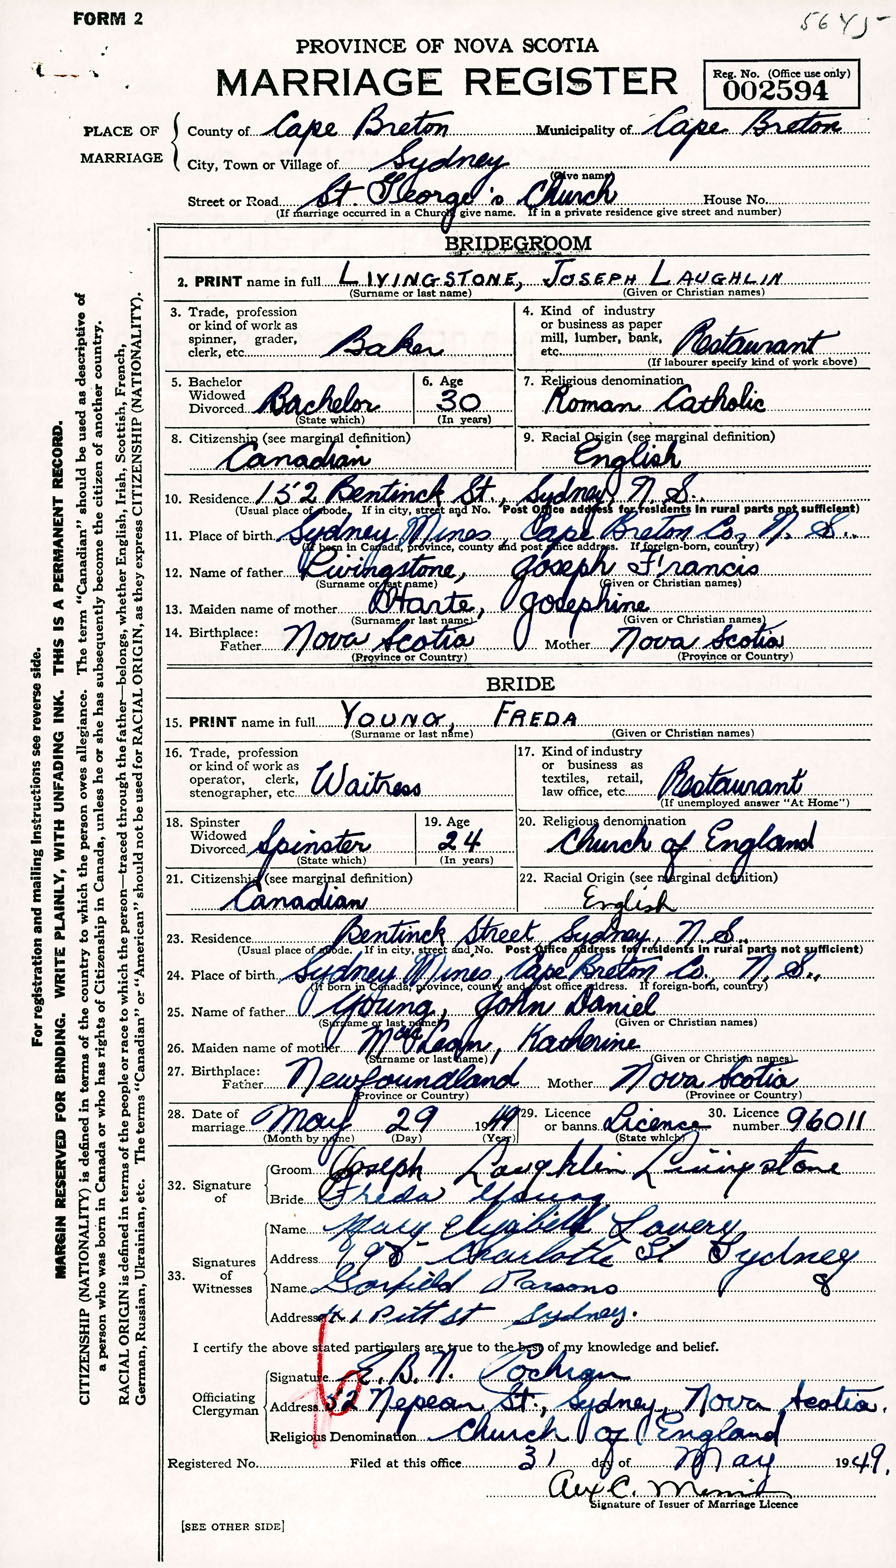 FORM 2
5645-
PROVINCE OF NOVA SCOTIA
MARRIAGE REGISTER
Reg. No. (Office use only)
002594
PLACE OF MARRIAGE
County of Cape Breton Municipality of Cape Breton
City, Town or Village of Sydney
(Give name)
Street or Road St. George's Church House No.
(If marriage occurred in a Church give name. If in a private residence give street and number)
BRIDEGROOM
2. PRINT name in full LIVINGSTONE, JOSEPH LAUGHLIN
(Surname or last name) (Given or Christian names)
3. Trade, profession or kind of work as spinner, grader, clerk, etc. Baker
4. Kind of industry or business as paper mill, lumber, bank, etc. Restaurant
(If labourer specify kind of work above)
5. Bachelor Widowed Divorced Bachelor
(State which)
6. Age 30
(In years)
7. Religious denomination
Roman Catholic
8. Citizenship (see marginal definition)
Canadian
9. Racial Origin (see marginal definition)
English
10. Residence 152 Bentinck St., Sydney, N. S.
(Usual place of abode. If in city, street and No. Post Office address for residents in rural parts not sufficient)
11. Place of birth Sydney Mines, Cape Breton Co, N. S.
(If born in Canada, province, county and post office address. If foreign-born, country)
12. Name of father Livingstone, Joseph Francis
(Surname or last name) (Given or Christian names)
13. Maiden name of mother Josephine
(Surname or last name) (Given or Christian names)
14. Birthplace:
Father Nova Scotia Mother Nova Scotia
(Province or Country) (Province or Country)
BRIDE
15. PRINT name in full YOUNG, FREDA
(Surname or last name) (Given or Christian names)
16. Trade, profession or kind of work as operator, clerk, stenographer, etc. Waitress
17. Kind of industry or business as textiles, retail, law office, etc. Restaurant
(If unemployed answer "At Home")
18. Spinster Widowed Divorced Spinster
(State which)
19. Age 24
(In years)
20. Religious denomination
Church of England
21. Citizenship (see marginal definition)
Canadian
22. Racial Origin (see marginal definition)
English
23. Residence Bentinck Street Sydney, N. S.
(Usual place of abode. If in city, street and No. Post Office address for residents in rural parts not sufficient)
24. Place of birth Sydney Mines, Cape Breton Co. N. S.,
(If born in Canada, province, county and post office address. If foreign-born, country)
25. Name of father Young, John Daniel
(Surname or last name) (Given or Christian names)
26. Maiden name of mother Katherine
(Surname or last name) (Given or Christian names)
27. Birthplace:
Father Newfoundland Mother Nova Scotia
(Province or Country) (Province or Country)
28. Date of marriage May 29 1949
(Month by name) (Day) (Year)
29. Licence or banns Licence
(State which)
30. Licence number 96011
32. Signature of
Groom Joseph Laughlin Livingstone
Bride Freda Young
33. Signatures of Witnesses
Name Mary Elizabeth Lavery
Address Charlotte St Sydney
Name Garfield Parsons
Address Pitt St Sydney.
I certify the above stated particulars are true to the best of my knowledge and belief.
Officiating Clergyman
Signature E. B. N. Cochran
Address 52 Nepean St., Sydney, Nova Scotia.
Religious Denomination Church of England
Registered No. Filed at this office 31 day of May 1949.
Alex C.
Signature of Issuer of Marriage Licence
[SEE OTHER SIDE]
For registration and mailing instructions see reverse side.
MARGIN RESERVED FOR BINDING. WRITE PLAINLY, WITH UNFADING INK. THIS IS A PERMANENT RECORD.
CITIZENSHIP (NATIONALITY) is defined in terms of the country to which the person owes allegiance. The term "Canadian" should be used as descriptive of
a person who was born in Canada or who has rights of Citizenship in Canada, unless he or she has subsequently become the citizen of another country.
RACIAL ORIGIN is defined in terms of the people or race to which the person—traced through the father—belongs, whether English, Irish, Scottish, French,
German, Russian, Ukrainian, etc. The terms "Canadian" or "American" should not be used for RACIAL ORIGIN, as they express CITIZENSHIP (NATIONALITY).